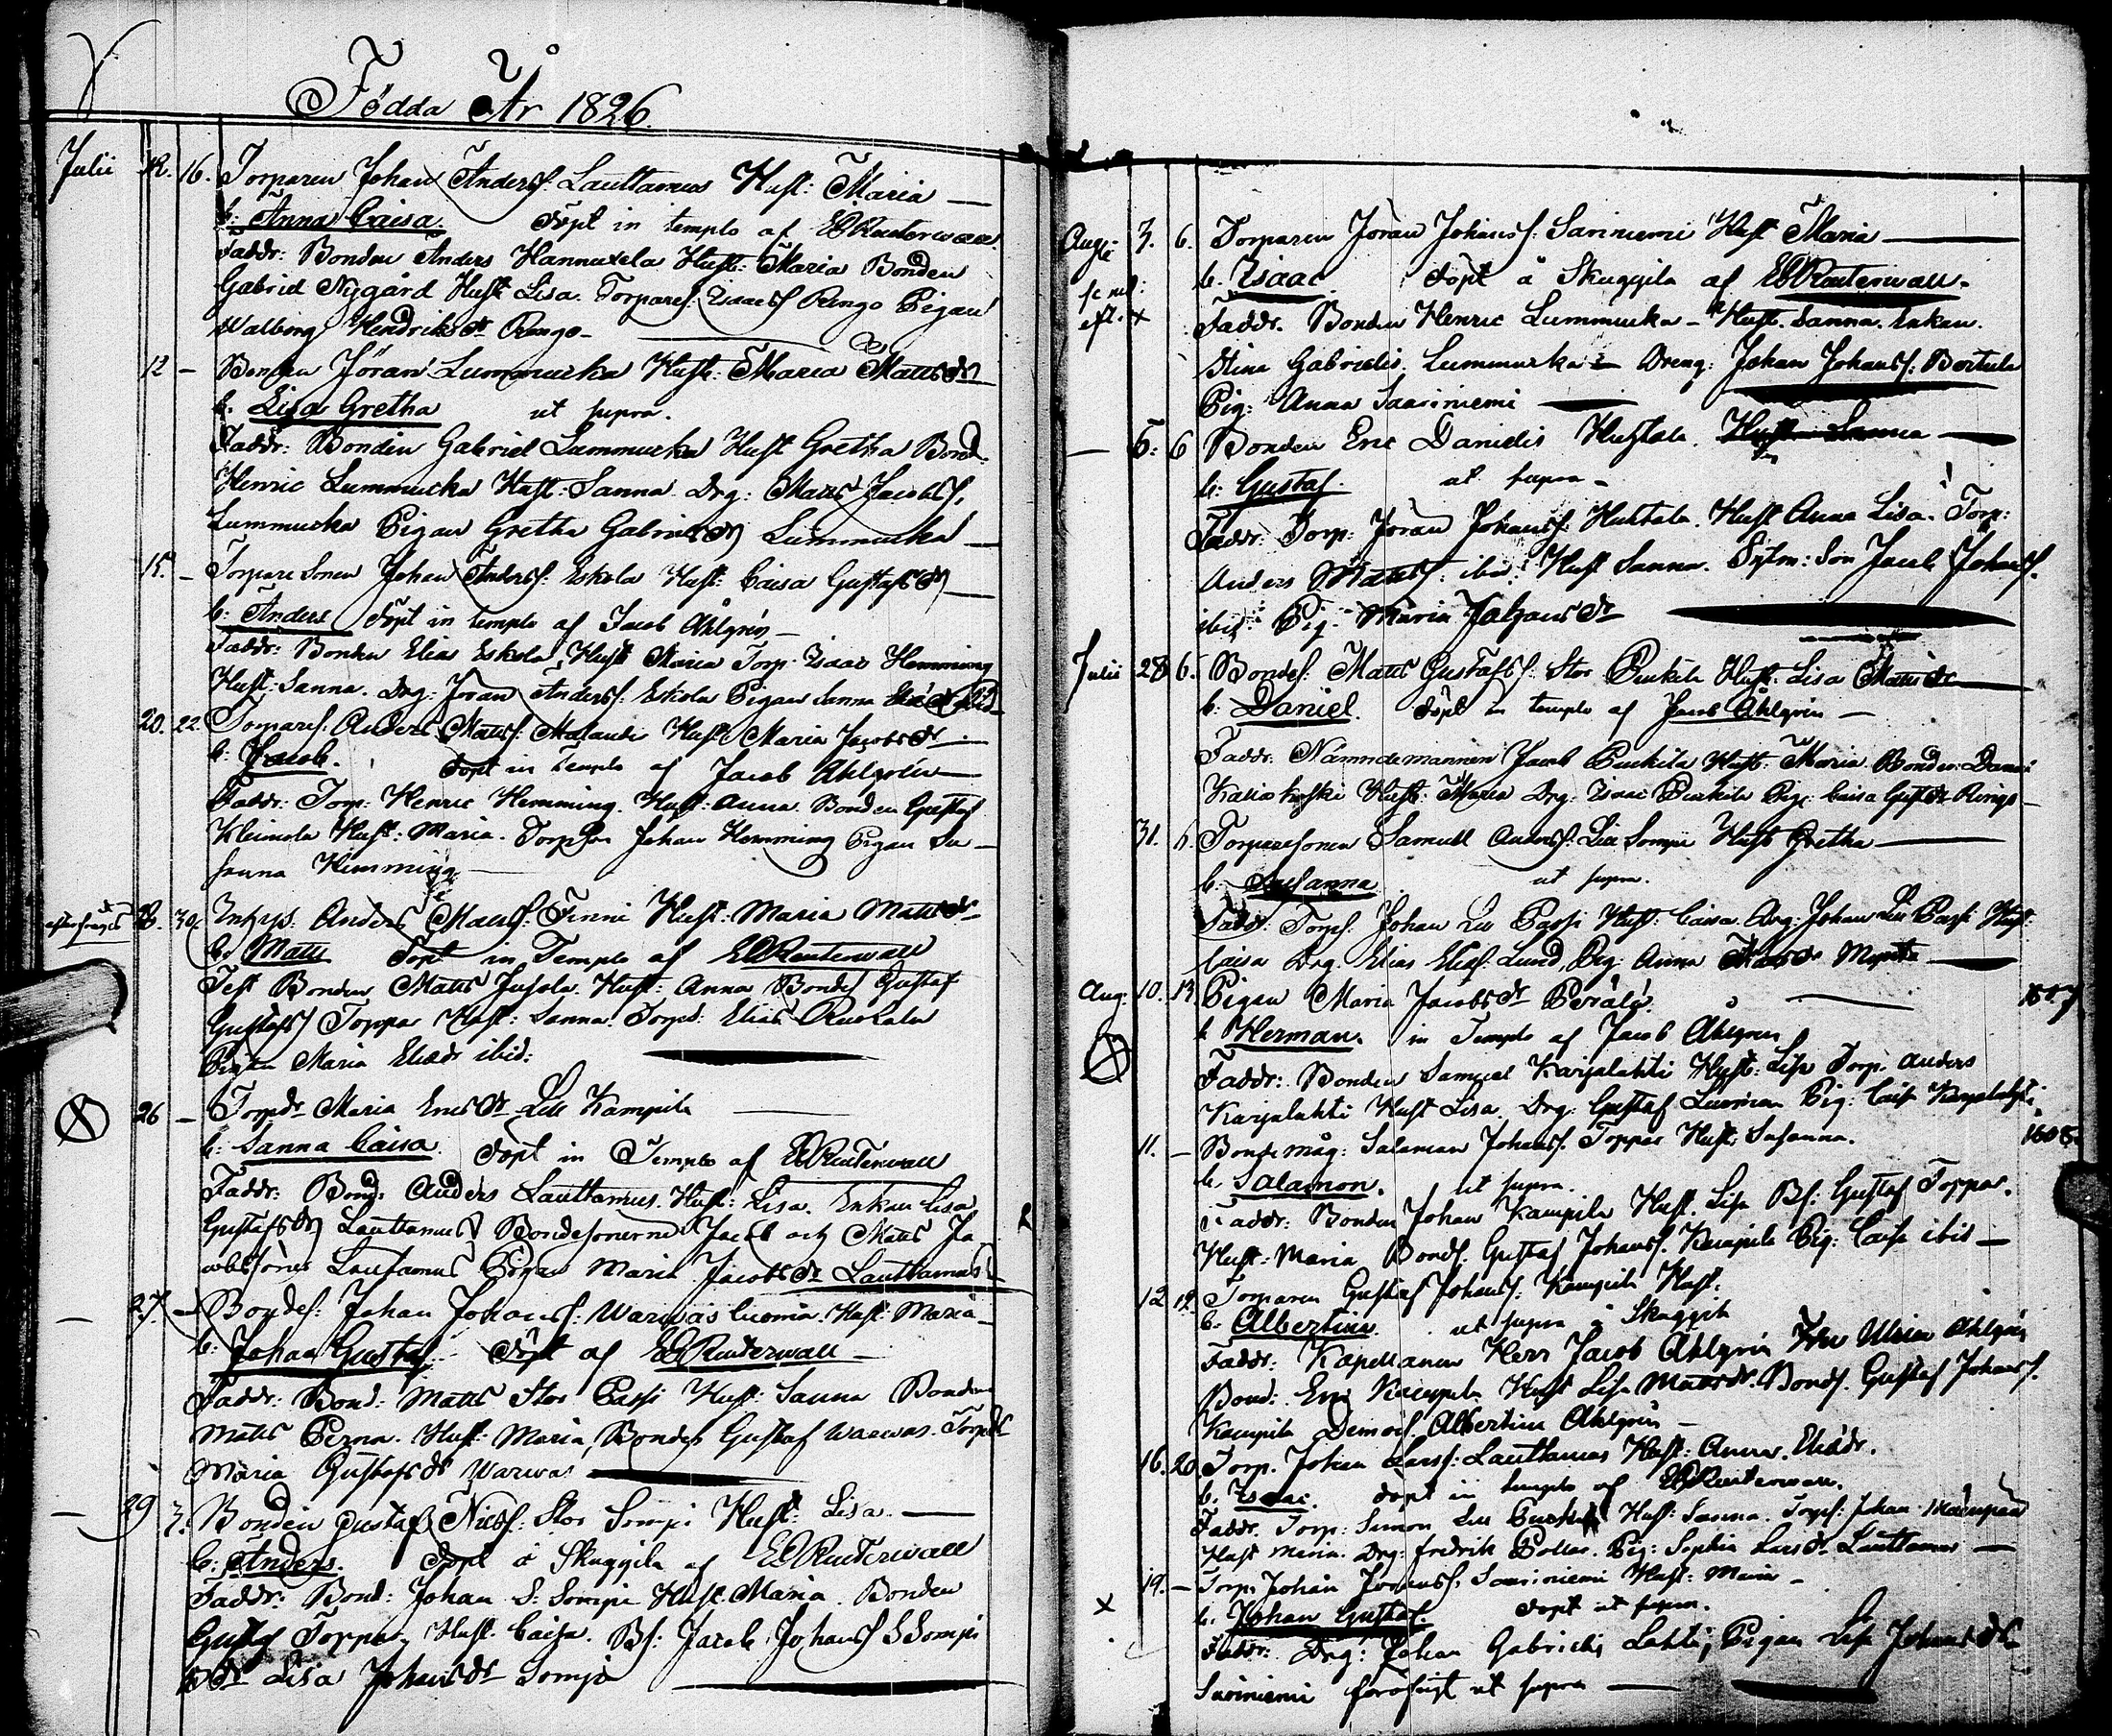 Födda År 1826.
Julii 12. 16. Torparen Johan Anderss: Lauttamus Hust: Maria
b: Anna Caisa. Döpt in templo af E Reuterwall.
Faddr: Bonden Anders Hannuxela Hust: Maria Bonden
Gabriel Nygård Hust Lisa. Torpares: Isacss Rengo Pigan
Walborg Hendriksdr Rengo
12 - Bonden Jöran Lummucka Hust: Maria Mattsdr
b. Lisa Gretha ut supra.
Faddr: Bonden Gabriel Lummucka Hust Gretha Bond:
Henric Lummucka Hust: Sanna Drg: Matts Jacobss,
Lummucka Pigan Gretha Gabrielsdr Lummucka
15. - Torpare Sonen Johan Anderss: Eskola Hust: Caisa Gustafsdr
b: Anders Döpt in templo af Jacob Ahlgrén
Faddr: Bonden Elias Eskola, Hust Maria Torp: Isaac Hemming
Hust: Sanna. Drg: Jöran Anderss: Eskola Pigan Sanna
20. 22. Torpares: Anders Mattss: Malandi Hust Maria Jacobsdr
b: Jacob. Döpt in Templo af Jacob Ahlgrén
Faddr: Torp: Henric Hemming. Hust: Anna. Bonden Gustaf
Kleimola Hust: Maria. Johan Hemming Pigan Su-
sanna Hemming
30. Inhys. Anders Matss: Finni Hust: Maria Mattsdr
b. Matts Döpt in Templo af E Reuterwall
Test Bonden Matts Jussola. Hust: Anna Bondes Gustaf
Gustafss Toppar Hust: Sanna. Elias Ruohala
Pigan Maria Eliædr ibid:
26 - Torpdr Maria Ericsdr Lill Kampila
b: Sanna Caisa. Döpt in Templo af E Reuterwall
Faddr: Bond: Anders Lauttamus. Hust: Lisa. Enkan Lisa
Gustafsdr Lauttamus, Bondesonerne Jacob och Matts Ja-
cobssöner Lauttamus Pigan Maria Jacobsdr Lauttamus
27. - Bondes: Johan Johanss: Warwas Hust: Maria
b: Johan Gustaf. Döpt af E Reuterwall
Faddr: Bond: Matts Stor Passi Hust: Sanna Bonden
Matts Perna. Hust: Maria, Bondes Gustaf Warwas. Torpdr
Maria Gustafsdr Warwas
29 3. Bonden Gustaf Nilss: Stor Sompi Hust: Lisa
b: Anders. Döpt å Skuggila af E Reuterwall
Faddr: Bond: Johan S: Sompi Hust. Maria. Bonden
Gustaf Toppar, Hust. Caisa. Bs: Jacob Johanss S Sompi
Lisa Johansdr Sompi
3. 6. Torparen Jöran Johanss: Sariniemi Hust Maria
b. Isaac Döpt å Skuggila af E Reuterwall.
Faddr. Bonden Henric Lummucka - Hust. Sanna. Enkan.
Stina Gabrielis. Lummucka - Dreng: Johan Johanss: Bertula
Pig: Anna Saariniemi
5: 6 Bonden Eric Danielis Huhtala.
b: Gustaf. ut supra
Faddr: Torp: Jöran Johanss: Huhtala. Hust Anna Lisa. Torp:
Anders Mattss: ibid: Hust Sanna. Son Jacob Johanss.
ibid: Pig: Maria Johansdr
Julii 28 6. Bondes: Matts Gustafss: Stor Puckila Hust. Lisa Mattsdr
b: Daniel. Döpt in templo af Jacob Ahlgrén
Faddr. Nämndemannen Jacob Puckila Hust: Maria. Bonden: Daniel
Kaliokoski Hust: Maria Drg: Isaac Puckila Pig: Caisa Gustdr Rengo
31. 6. Torparesonen Samuel Anderss: Lill Sompi Hust Gretha
b. Susanna ut supra.
Faddr: Torps: Johan Lill Passi Hust: Caisa. Drg: Johan Lill Passi Hust:
Caisa Drg. Elias Eliæs: Lund, Pig: Anna
Aug: 10. 13. Pigan Maria Jacobsdr Perälä.
b Herman. in Templo af Jacob Ahlgren
Faddr: Bonden Samuel Karjalahti Hust: Lisa Torp: Anders
Karjalahti Hust Lisa. Drg: Gustaf Luoma Pig: Caisa Karjalahti
11. - Bonde måg: Salamon Johanss: Toppar Hust: Susanna.
b. Salamon. ut supra.
Faddr: Bonden Johan Kampila Hust. Lisa Bs: Gustaf Toppar.
Hust: Maria Bonds: Gustaf Johanss: Kampila Pig: Caisa ibid
12 12. Torparen Gustaf Johanss: Kampila Hust:
b. Albertina. ut supra å Skuggila
Faddr: Kapellanen Herr Jacob Ahlgrén Fru Ulrica Ahlgrén
Bond: Eric Kampila Hust Lisa Mattsdr. Bonds. Gustaf Johanss.
Kampila Demois: Albertina Ahlgrén
16. 20. Torp. Johan Larss: Lauttamus Hust: Anna. Eliædr.
b. Isaac. Döpt in templo af E Reuterwall.
Faddr. Torp: Simon Lill Hust: Sanna. Torps: Johan
Hust Maria. Drg: Fredrik Pollar. Pig: Sophia Larsdr Lauttamus
19. - Torp. Johan Johanss. Saariniemi Hust: Maria
b. Johan Gustaf. Döpt ut supra.
Faddr: Drg: Johan Gabrielis Lahti, Pigan Lisa Johansdr
Sariniemi ut supra